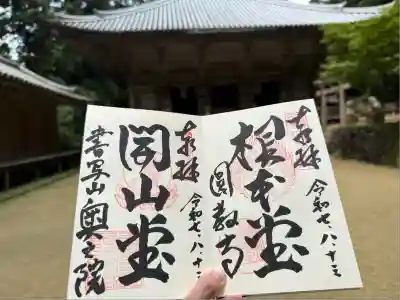 奉拝
令和七、八、十三
根本堂
圓教寺
奉拝
令和七、八、十三
開山堂
書写山奥之院